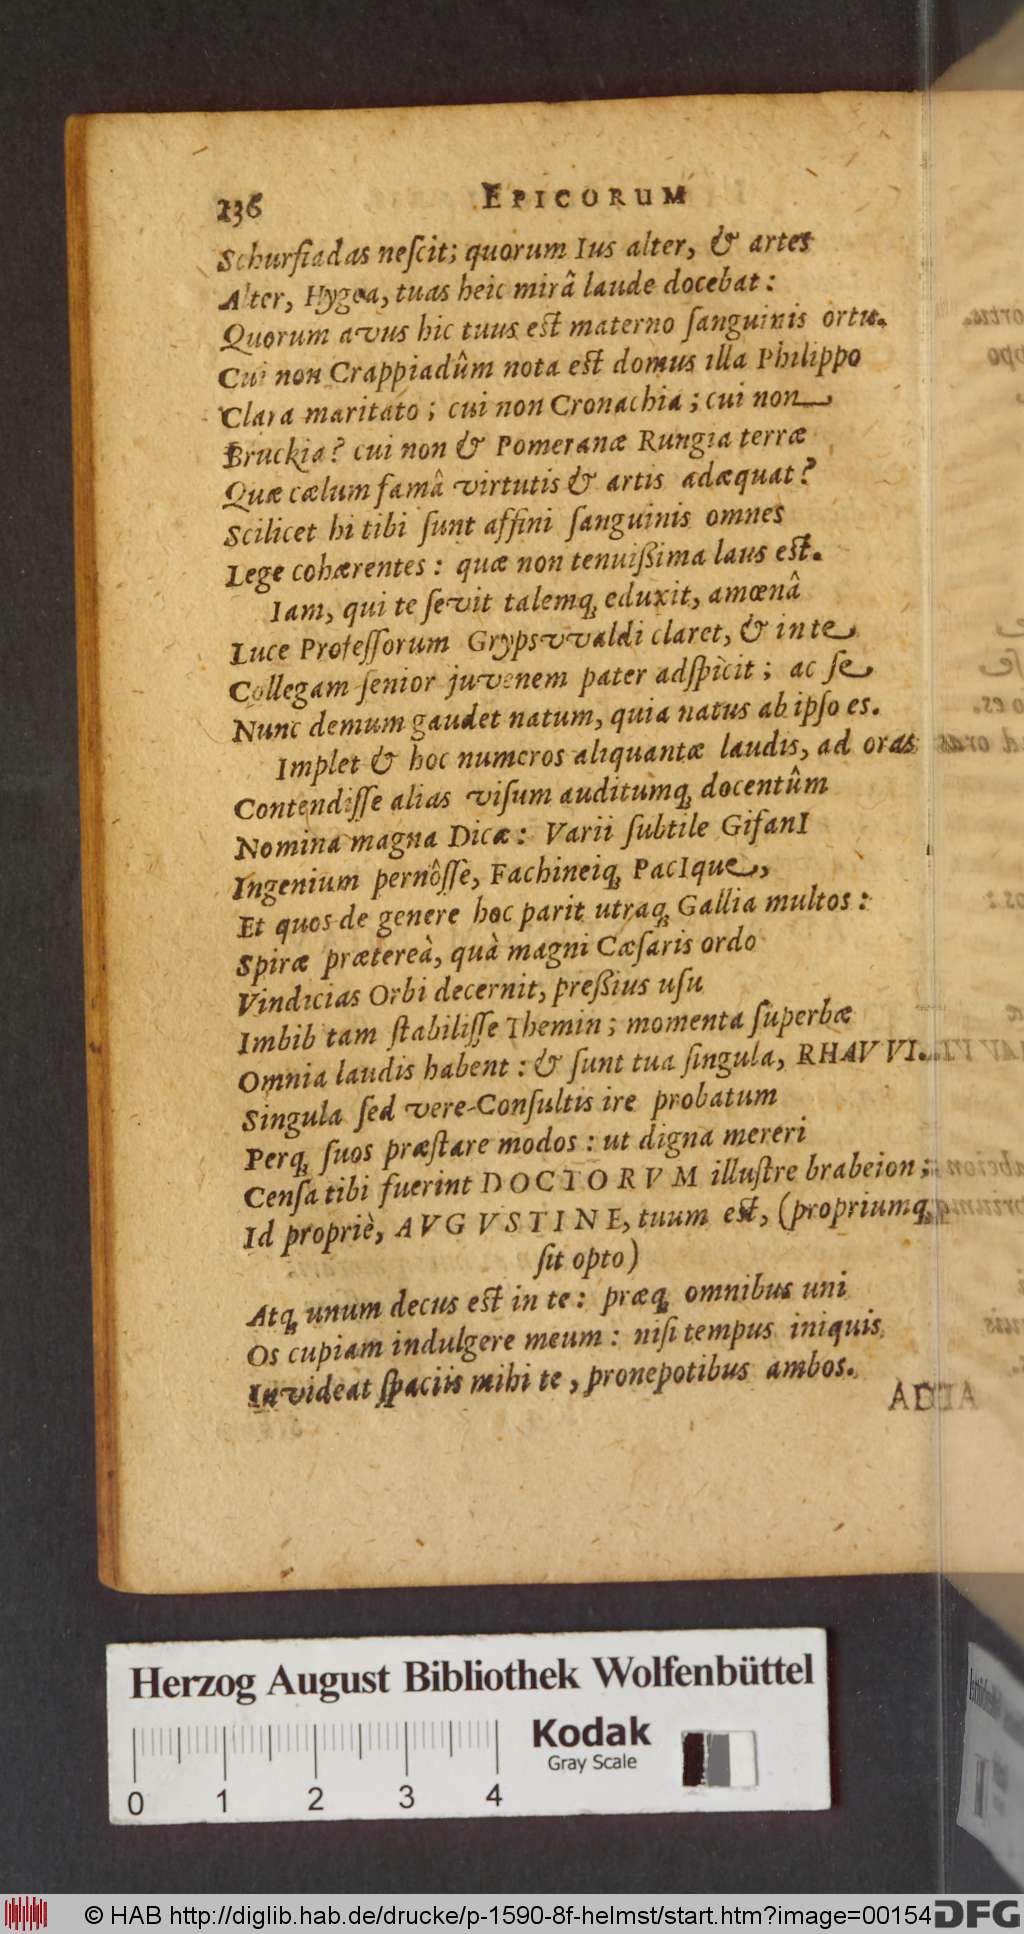 136 EPICORUM
Schurfiadas neſcit; quorum Ius alter, & artes
Alter, Hygea, tuas heic mirâ laude docebat:
Quorum avus hic tuus est materno ſanguinis ortu.
Cui non Crappiadûm nota est domus illa Philippo
Clara maritato; cui non Cronachia; cui non
Bruckia? cui non & Pomeranæ Rungia terræ
Quæ cælum famâ virtutis & artis adæquat?
Scilicet hi tibi ſunt affini ſanguinis omnes
Lege cohærentes: quæ non tenuißima laus est.
Iam, qui te ſevit talemq́; eduxit, amœnâ
Luce Profeſſorum Grypsvvaldi claret, & in te
Collegam ſenior juvenem pater adſpicit; ac ſe
Nunc demum gaudet natum, quia natus ab ipſo es.
Implet & hoc numeros aliquantæ laudis, ad oras
Contendiſſe alias viſum auditumq; docentûm
Nomina magna Dicæ: Varii ſubtile GifanI
Ingenium pernôſſe, Fachineiq; PacIque,
Et quos de genere hoc parit utraq; Gallia multos:
Spiræ prætereà, quà magni Cæſaris ordo
Vindicias Orbi decernit, preßius uſu
Imbibitam ſtabiliſſe Themin; momenta ſuperbæ
Omnia laudis habent: & ſunt tua ſingula, RHAVVI.
Singula ſed vere-Conſultis ire probatum
Perq; ſuos præſtare modos: ut digna mereri
Cenſa tibi fuerint DOCTORVM illuſtre brabeion;
Id propriè, AVGVSTINE, tuum est, (propriumq;
ſit opto)
Atq; unum decus est in te: præq; omnibus uni
Os cupiam indulgere meum: niſi tempus iniquis
Invideat ſpaciis mihi te, pronepotibus ambos.
AD
Herzog August Bibliothek Wolfenbüttel
Kodak
Gray Scale
0 1 2 3 4
© HAB http://diglib.hab.de/drucke/p-1590-8f-helmst/start.htm?image=00154
DFG